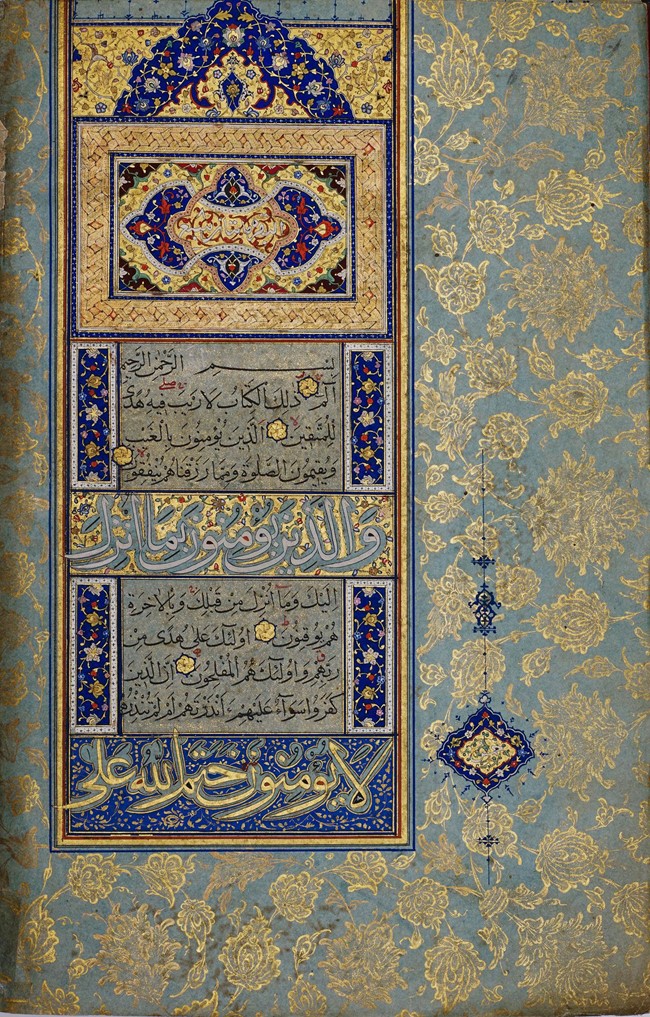 بسم الرحمن الرحيم
الم ذلك الكتاب لا ريب فيه هدى
للمتقين الذين يؤمنون بالغيب
ويقيمون الصلوة ومما رزقناهم ينفقون
والذين يؤمنون بما انزل
اليك وما انزل من قبلك وبالاخرة
هم يوقنون اولئك على هدى من
ربهم واولئك هم المفلحون ان الذين
كفروا سواء عليهم ءانذرتهم ام لم تنذرهم
لا يؤمنون ختم الله على